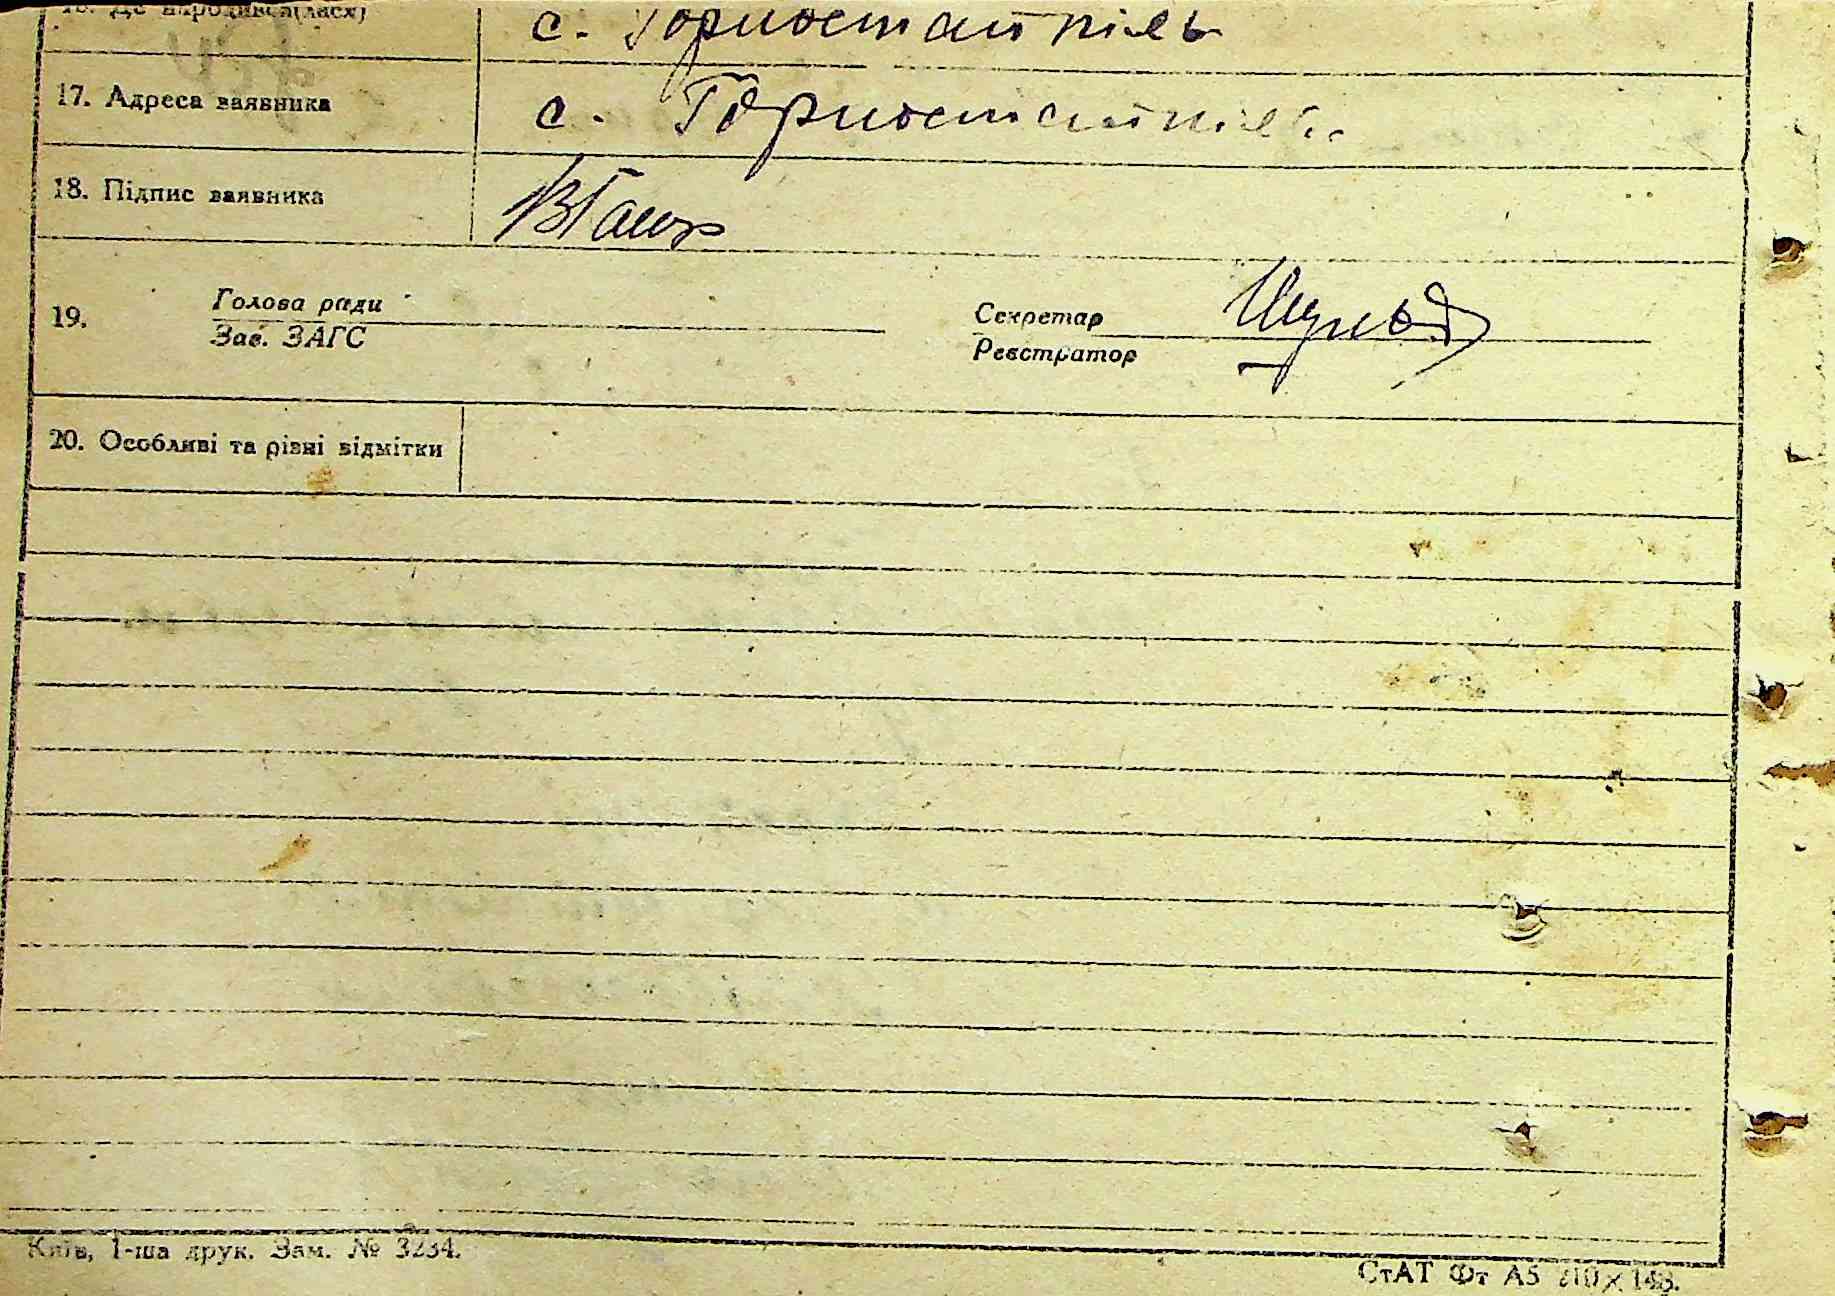 16. Де народився(лася) с. Горностайпіль
17. Адреса заявника с. Горностайпіль
18. Підпис заявника
19. Голова ради Секретар
Зав. ЗАГС Реєстратор
20. Особливі та різні відмітки
Київ, 1-ша друк. Зам. № 3234.
СтАТ Фт А5 210×148.